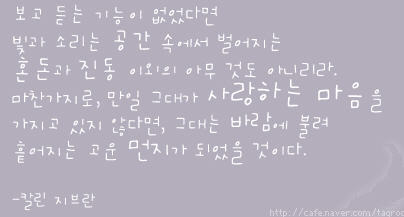 보고 듣는 기능이 없었다면
빛과 소리는 공간 속에서 벌어지는
혼돈과 진동 이외의 아무 것도 아니리라.
마찬가지로, 만일 그대가 사랑하는 마음을
가지고 있지 않다면, 그대는 바람에 불려
흩어지는 고운 먼지가 되었을 것이다.
-칼린 지브란
http://cafe.naver.com/taoroo